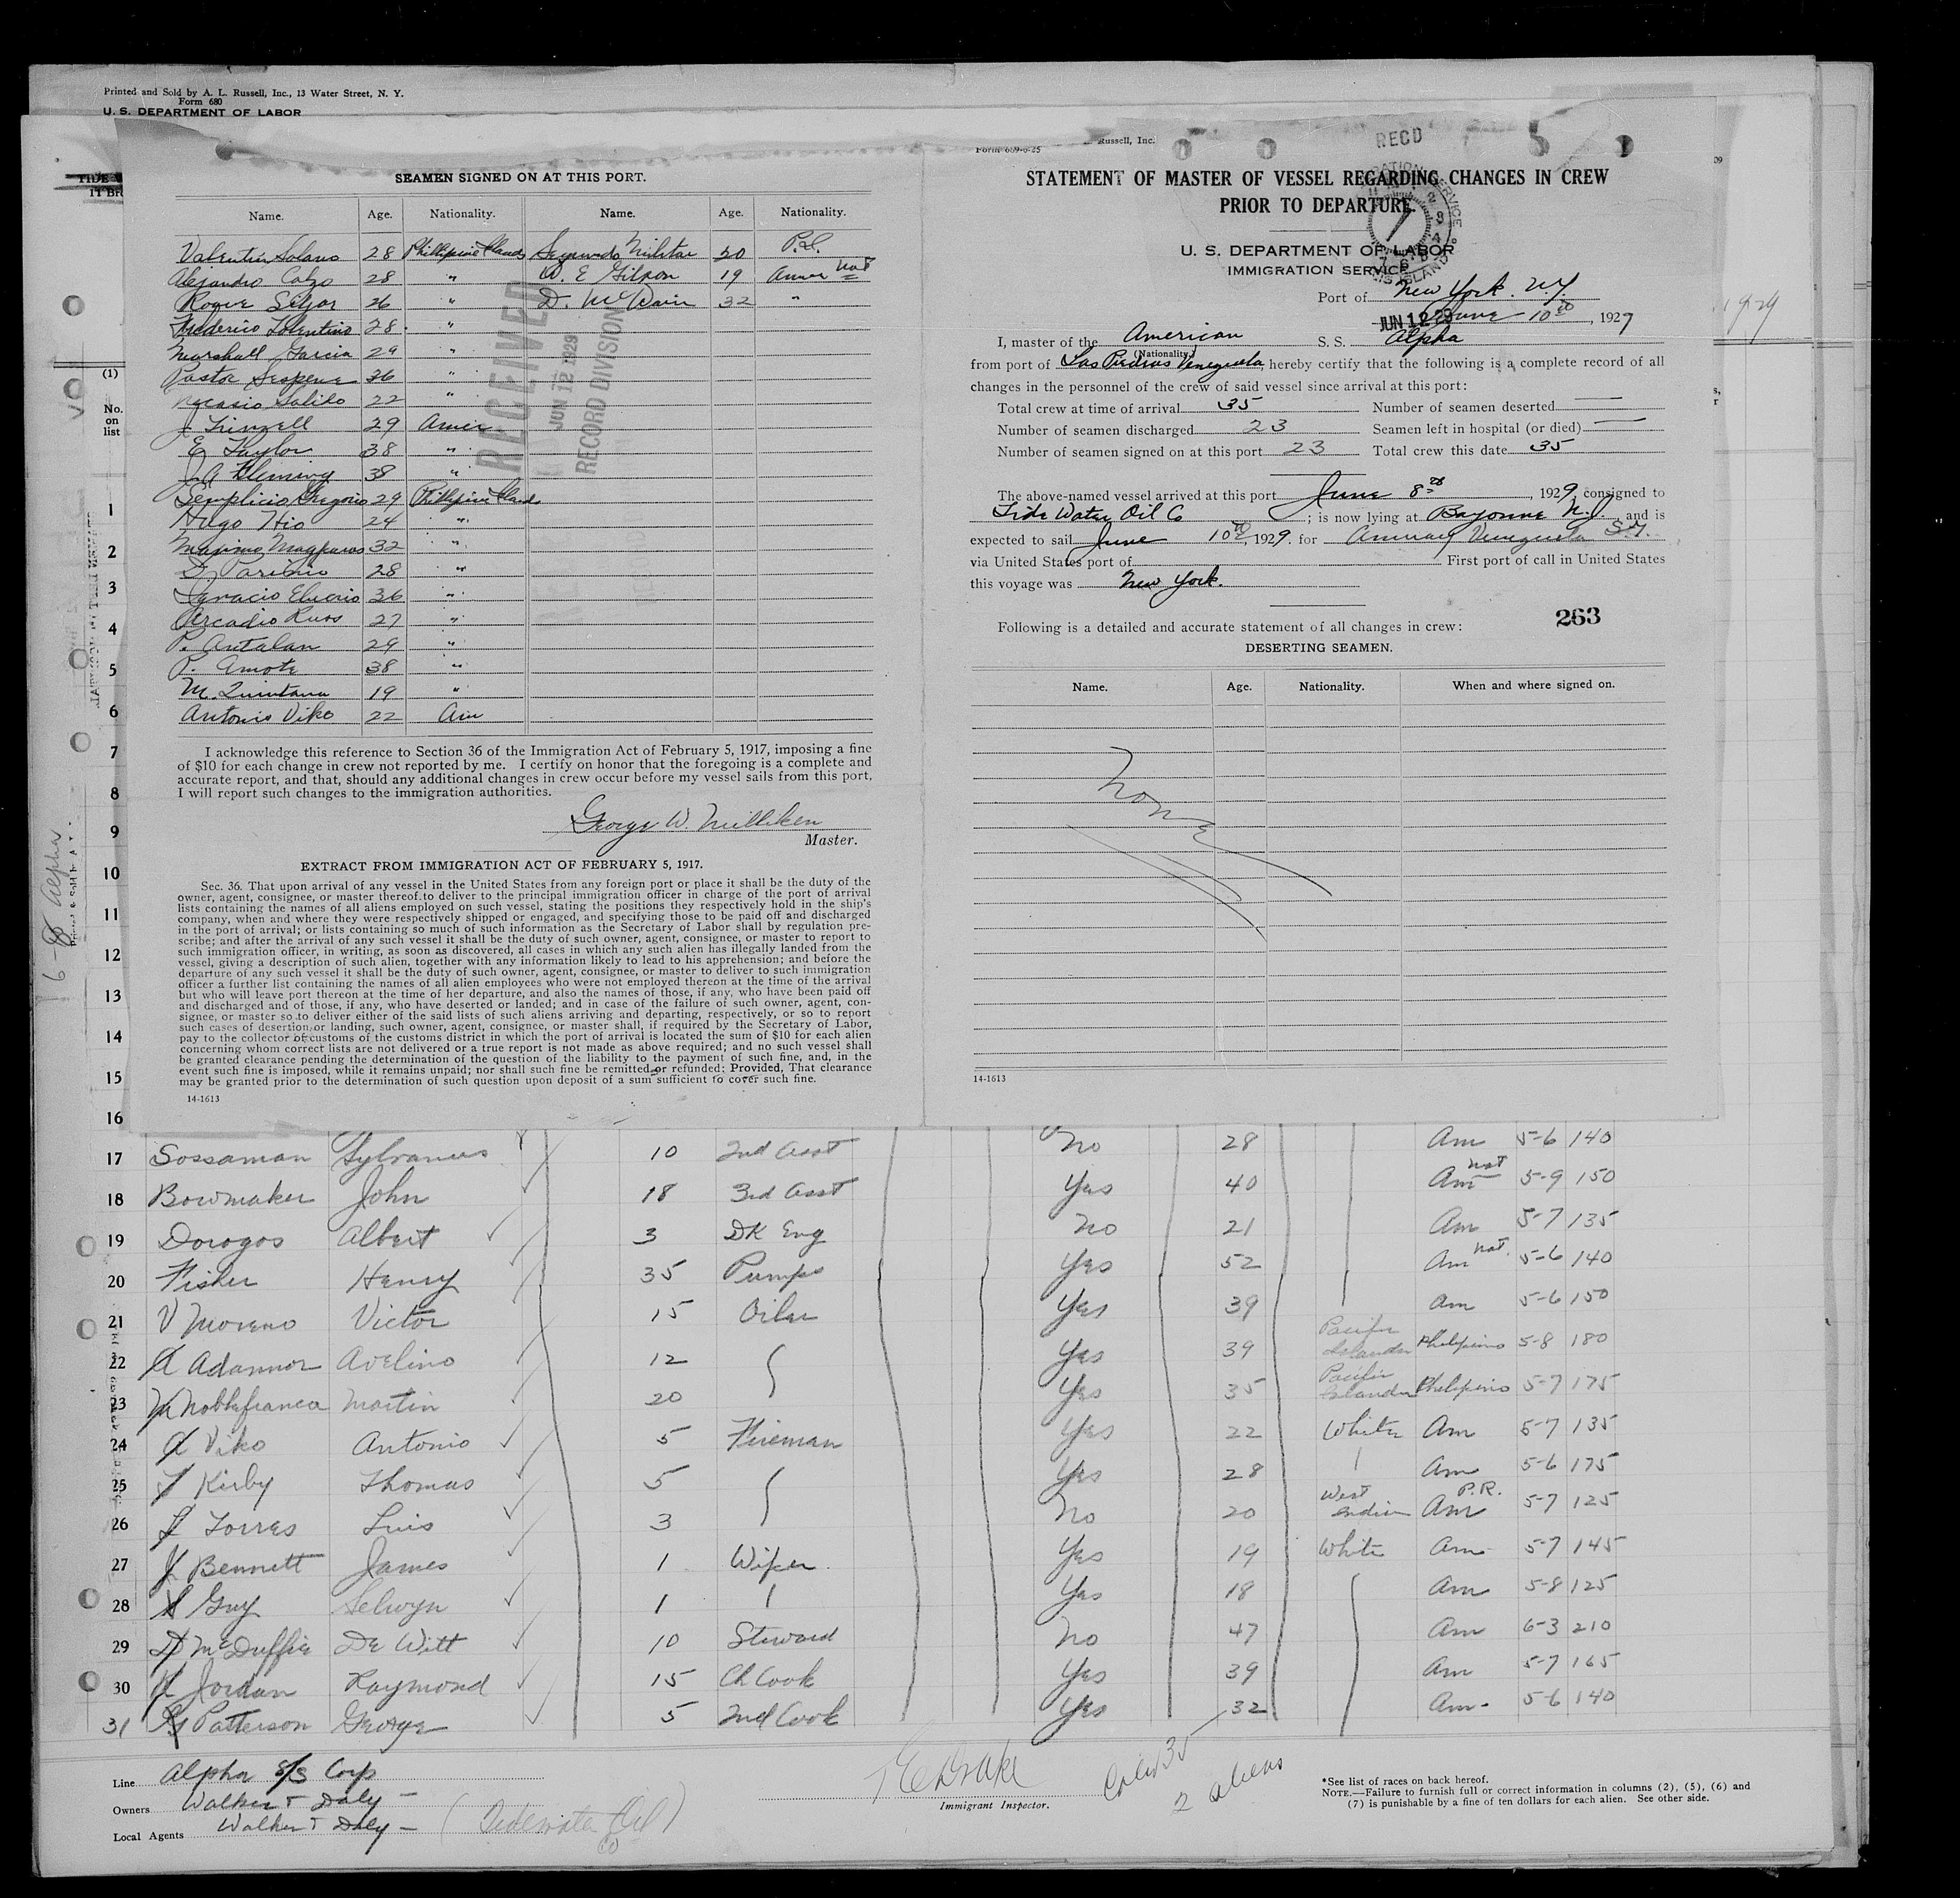 Printed and Sold by A. L. Russell, Inc., 13 Water Street, N. Y.
Form 680
U. S. DEPARTMENT OF LABOR
SEAMEN SIGNED ON AT THIS PORT.
Name. Age. Nationality. Name. Age. Nationality.
Valentin Solano 28 Phillipine Islands Segundo Militar 20 P.I.
Alejandro Calzo 28 " W. E. Gilson 19 Amer Nat
Roque 26 " D. McBain 32 "
Federico Tolentino 28 "
Marshall Garcia 29 "
Pastor 36 "
Nicasio Salido 22 "
J Frinzell 29 Amer
E Taylor 38 "
J. A Fleming 38 "
Semplicio Gregorio 29 Phillipine Islands
Hugo Hio 24 "
Maximo 32 "
28 "
Ignacio 36 "
Arcadio 27 "
P. Antalan 29 "
P. Amote 38 "
M. Quintana 19 "
Antonio Viko 22 Am
RECEIVED
JUN 12 1929
RECORD DIVISION
I acknowledge this reference to Section 36 of the Immigration Act of February 5, 1917, imposing a fine
of $10 for each change in crew not reported by me. I certify on honor that the foregoing is a complete and
accurate report, and that, should any additional changes in crew occur before my vessel sails from this port,
I will report such changes to the immigration authorities.
George W. Milliken
Master.
EXTRACT FROM IMMIGRATION ACT OF FEBRUARY 5, 1917.
Sec. 36. That upon arrival of any vessel in the United States from any foreign port or place it shall be the duty of the
owner, agent, consignee, or master thereof to deliver to the principal immigration officer in charge of the port of arrival
lists containing the names of all aliens employed on such vessel, stating the positions they respectively hold in the ship's
company, when and where they were respectively shipped or engaged, and specifying those to be paid off and discharged
in the port of arrival; or lists containing so much of such information as the Secretary of Labor shall by regulation pre-
scribe; and after the arrival of any such vessel it shall be the duty of such owner, agent, consignee, or master to report to
such immigration officer, in writing, as soon as discovered, all cases in which any such alien has illegally landed from the
vessel, giving a description of such alien, together with any information likely to lead to his apprehension; and before the
departure of any such vessel it shall be the duty of such owner, agent, consignee, or master to deliver to such immigration
officer a further list containing the names of all alien employees who were not employed thereon at the time of the arrival
but who will leave port thereon at the time of her departure, and also the names of those, if any, who have been paid off
and discharged and of those, if any, who have deserted or landed; and in case of the failure of such owner, agent, con-
signee, or master so to deliver either of the said lists of such aliens arriving and departing, respectively, or so to report
such cases of desertion or landing, such owner, agent, consignee, or master shall, if required by the Secretary of Labor,
pay to the collector of customs of the customs district in which the port of arrival is located the sum of $10 for each alien
concerning whom correct lists are not delivered or a true report is not made as above required; and no such vessel shall
be granted clearance pending the determination of the question of the liability to the payment of such fine, and, in the
event such fine is imposed, while it remains unpaid; nor shall such fine be remitted or refunded: Provided, That clearance
may be granted prior to the determination of such question upon deposit of a sum sufficient to cover such fine.
14-1613
Form 689-6-25 Russell, Inc.
RECD
STATEMENT OF MASTER OF VESSEL REGARDING CHANGES IN CREW
PRIOR TO DEPARTURE.
U. S. DEPARTMENT OF LABOR
IMMIGRATION SERVICE
Port of New York. N.Y.
JUN 12 29 June 10th, 1929
I, master of the American S. S. Alpha
(Nationality.)
from port of Las Piedras Venezuela, hereby certify that the following is a complete record of all
changes in the personnel of the crew of said vessel since arrival at this port:
Total crew at time of arrival 35 Number of seamen deserted
Number of seamen discharged 23 Seamen left in hospital (or died)
Number of seamen signed on at this port 23 Total crew this date 35
The above-named vessel arrived at this port June 8th, 1929, consigned to
Tide Water Oil Co; is now lying at Bayonne N.J. and is
expected to sail June 10th, 1929. for Amuay Venezuela S.A.
via United States port of First port of call in United States
this voyage was New York.
263
Following is a detailed and accurate statement of all changes in crew:
DESERTING SEAMEN.
Name. Age. Nationality. When and where signed on.
None
14-1613
(1)
No.
on
list
1
2
3
4
5
6
7
8
9
10
11
12
13
14
15
16
6-8 Alpha
17 Sossaman Sylvanus 10 2nd Asst No 28 Am 5-6 140
18 Bowmaker John 18 3rd Asst Yes 40 Am Nat 5-9 150
19 Dorogos Albert 3 DK Eng No 21 Am 5-7 135
20 Fisher Henry 35 Pumps Yes 52 Am Nat. 5-6 140
21 V Moreno Victor 15 Oiler Yes 39 Am 5-6 150
22 A Adannor Avelino 12 Yes 39 Pacific Islander Philipino 5-8 180
23 M Noblefranca Martin 20 Yes 35 Pacific Islander Philipino 5-7 175
24 A Viko Antonio 5 Fireman Yes 22 White Am 5-7 135
25 T Kirby Thomas 5 Yes 28 Am 5-6 175
26 L Torres Luis 3 No 20 West Indian Am P.R. 5-7 125
27 J Bennett James 1 Wiper Yes 19 White Am 5-7 145
28 S Guy Selwyn 1 Yes 18 Am 5-8 125
29 D McDuffie De Witt 10 Steward No 47 Am 6-3 210
30 R Jordan Raymond 15 Ch Cook Yes 39 Am 5-7 165
31 G Patterson George 5 2nd Cook Yes 32 Am 5-6 140
Line Alpha S/S Corp
Owners Walker & Daly
Local Agents Walker & Daly (Tidewater Oil Co)
Drake
Immigrant Inspector.
35
2 aliens
*See list of races on back hereof.
NOTE.—Failure to furnish full or correct information in columns (2), (5), (6) and
(7) is punishable by a fine of ten dollars for each alien. See other side.